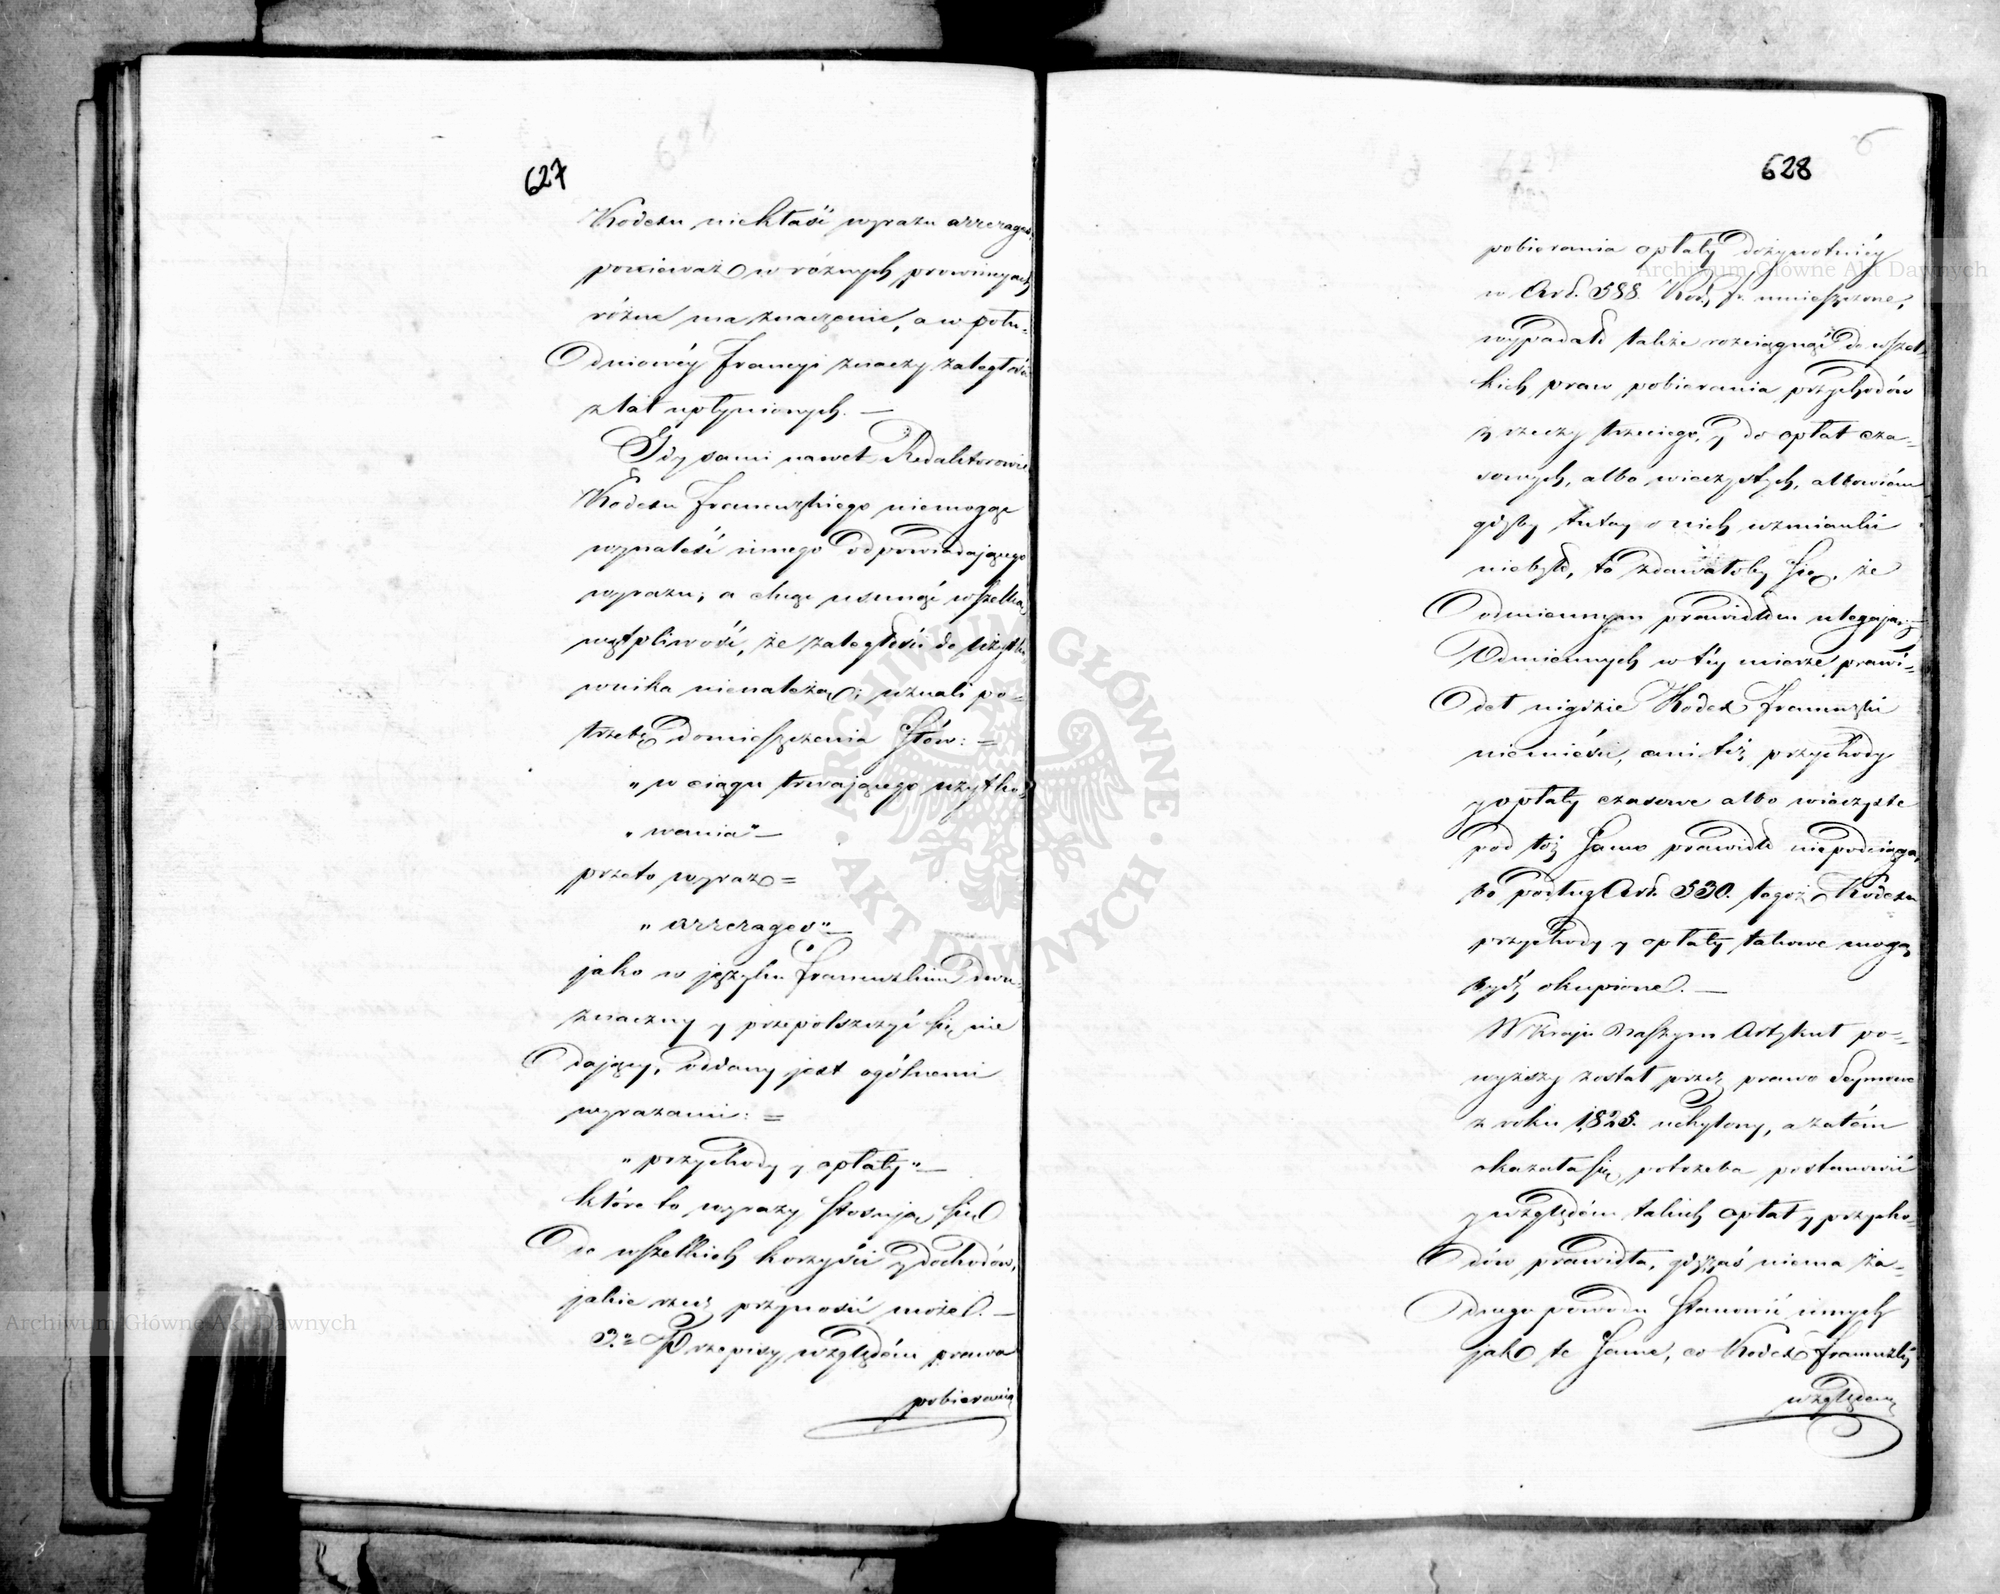 627
Kodexu niekłaść wyrazu arrerages
ponieważ w różnych prowincyach
różne ma znaczenie, a w połu-
dniowéy Francyi znaczy zaległości
z lat upłynionych. —
Gdy sami nawet Redaktorowie
Kodexu francuzkiego niemogąc
wynaleść innego odpowiadającego
wyrazu, a chcąc usunąć wszelką
wątpliwość, że zaległości do użytko-
wnika nienależą; uznali po-
trzebę domieszczenia słów: =
"w ciągu trwającego użytko-
"wania" —
przeto wyraz =
"arrerages" —
jako w języku francuzkim dwu-
znaczny y przepolszczyć się nie
dający, oddany jest ogólnemi
wyrazami: =
"przychody y opłaty" —
które to wyrazy stosują się
do wszelkich korzyści y dochodów,
jakie rzecz przynosić może. —
3.° Przepisy względem prawa
pobierania
6
628
pobierania opłaty dożywotniéy
w Art. 588. Kod. fr. umieszczone,
wypadało także rozciągnąć do wszel-
kich praw pobierania przychodów
z rzeczy trzeciego, y do opłat cza-
sowych, albo wieczystych, albowiem
gdyby tutay o nich wzmianki
niebyło, to zdawałoby się, że
odmiennym prawidłom ulegają. =
Odmiennych w téy mierze prawi-
deł nigdzie Kodex francuzki
niemieści, ani też przychody
y opłaty czasowe albo wieczyste
pod toż samo prawidło niepodciąga,
bo podług Art. 530. tegoż Kodexu
przychody y opłaty takowe mogą
bydź okupione. —
W Kraju naszym Artykuł po-
wyższy został przez prawo Seymowe
z roku 1825. uchylony, a zatém
okazała się potrzeba postanowić
y względem takich opłat y przycho-
dów prawidła, gdy zaś niema ża-
dnego powodu stanowić innych
jak te same, co Kodex francuzki
względem
Archiwum Główne Akt Dawnych
Archiwum Główne Akt Dawnych
ARCHIWUM GŁÓWNE · AKT DAWNYCH ·